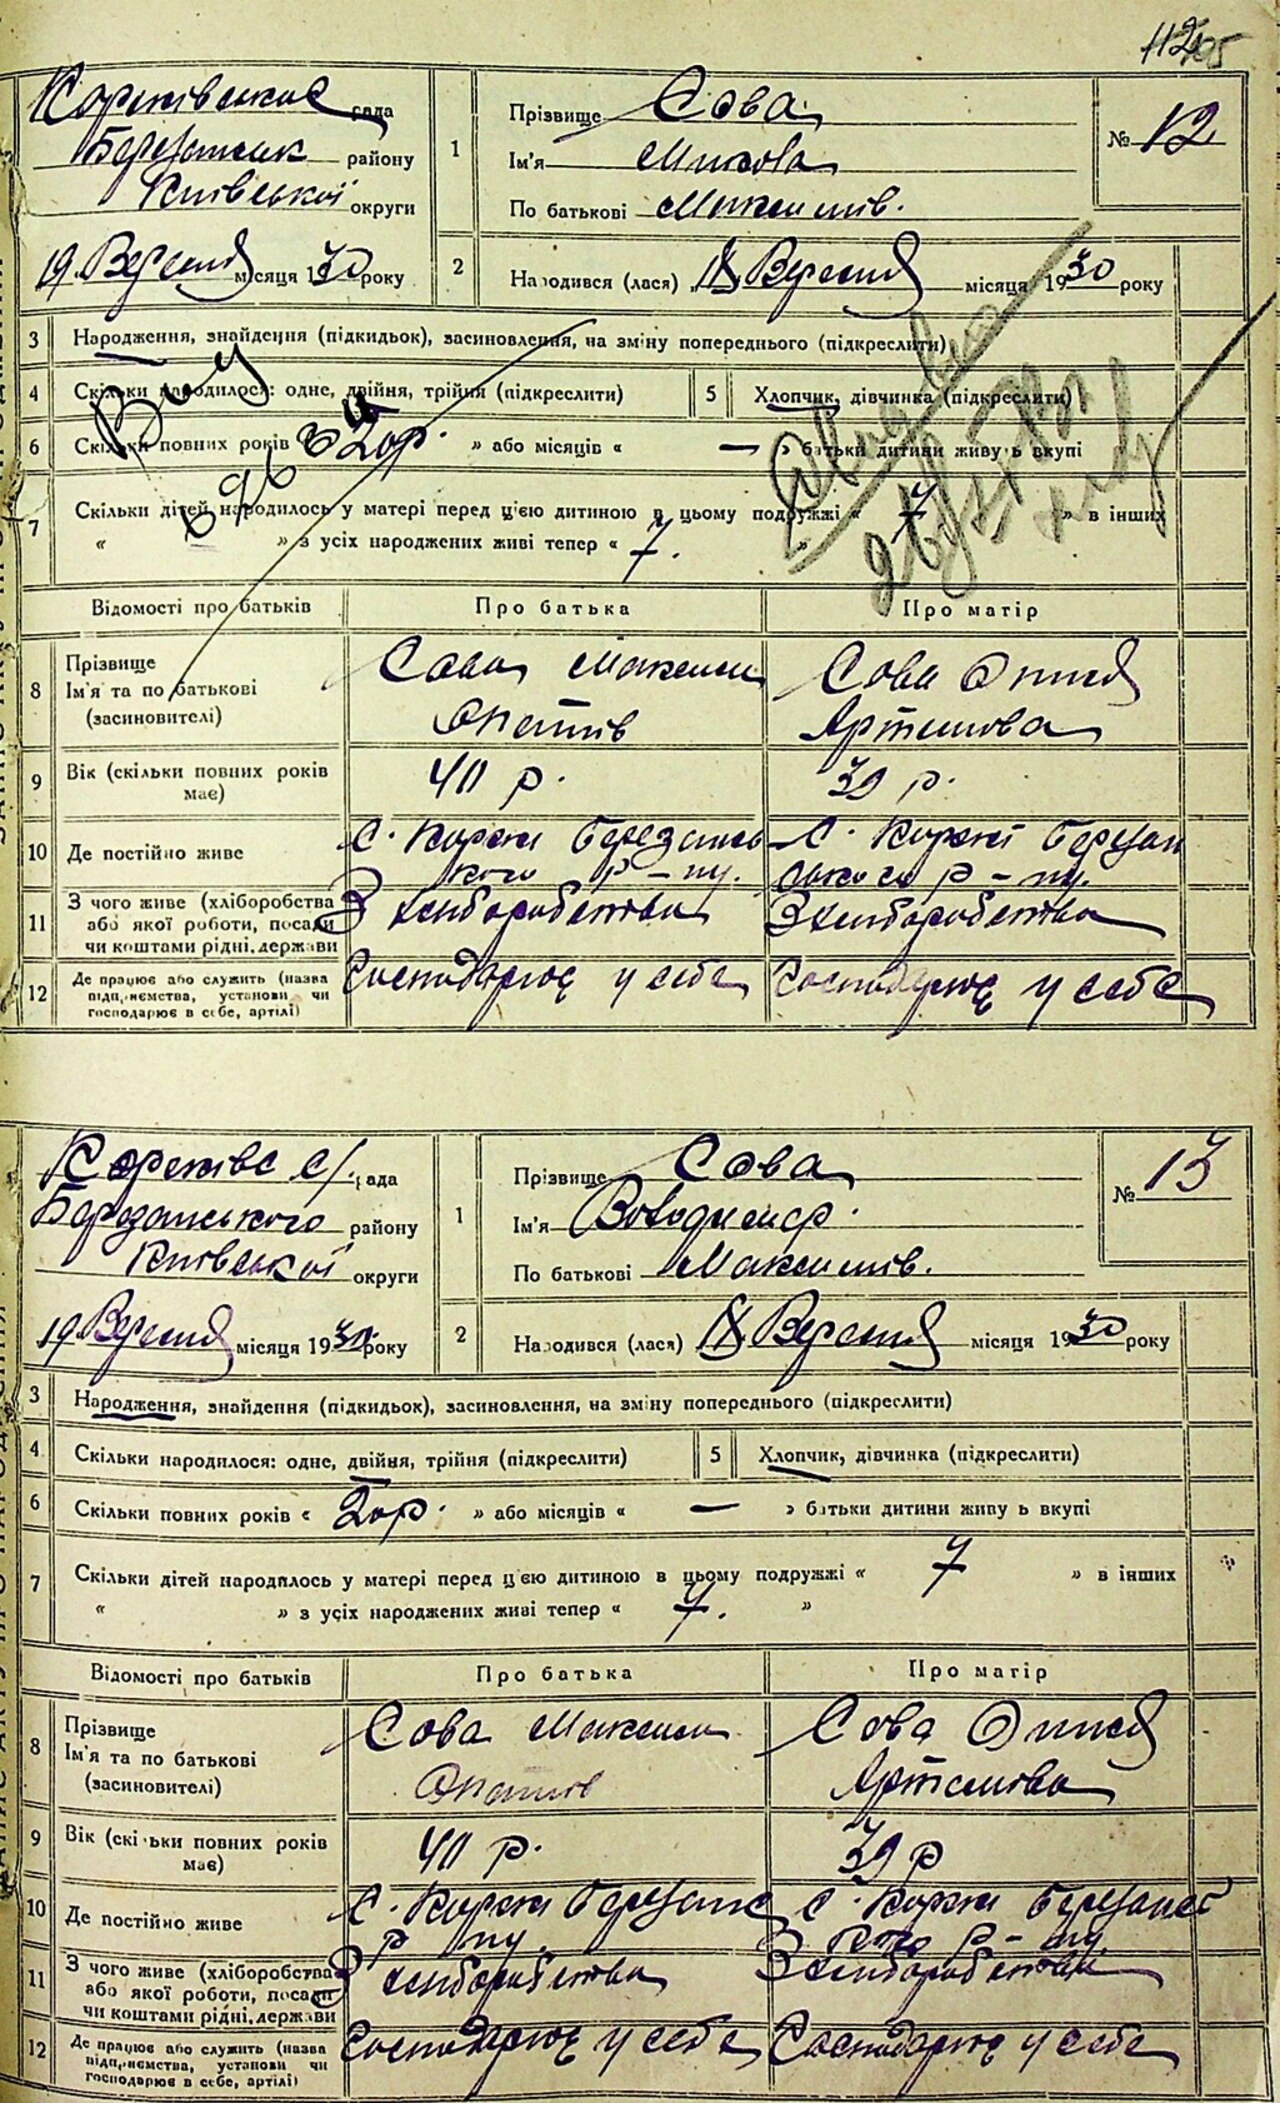 112
Коржівська рада
1
Прізвище Сова
№ 12
Березанськ району
Ім'я Микола
Київської округи
По батькові Максимів.
19. Вересня місяця 1930 року
2
Народився (лася) 18 Вересня місяця 1930 року
3 Народження, знайдення (підкидьок), засиновлення, на зміну попереднього (підкреслити)
4 Скільки народилося: одне, двійня, трійня (підкреслити)
5 Хлопчик, дівчинка (підкреслити)
6 Скільки повних років 20р. » або місяців « — » батьки дитини живуть вкупі
7 Скільки дітей народилось у матері перед цією дитиною в цьому подружжі « 7 » в інших
« — » з усіх народжених живі тепер « 7. »
Відомості про батьків
Про батька
Про матір
8 Прізвище
Ім'я та по батькові
(засиновителі)
Сова Максим
Опатів
Сова Онися
Артемова
9 Вік (скільки повних років
має)
40 р.
39 р.
10 Де постійно живе
С. Коржі Березансь
кого р-ну.
С. Коржі Березан
ського р-ну.
11 З чого живе (хліборобства
або якої роботи, посади
чи коштами рідні, держави
З хліборобства
З хліборобства
12 Де працює або служить (назва
підприємства, установи чи
господарює в себе, артілі)
Господарює у себе
Господарює у себе
Коржівс с/. рада
1
Прізвище Сова
№ 13
Березанського району
Ім'я Володимир.
Київської округи
По батькові Максимів.
19. Вересня місяця 1930 року
2
Народився (лася) 18 Вересня місяця 1930 року
3 Народження, знайдення (підкидьок), засиновлення, на зміну попереднього (підкреслити)
4 Скільки народилося: одне, двійня, трійня (підкреслити)
5 Хлопчик, дівчинка (підкреслити)
6 Скільки повних років « 20р. » або місяців « — » батьки дитини живуть вкупі
7 Скільки дітей народилось у матері перед цією дитиною в цьому подружжі « 7 » в інших
« » з усіх народжених живі тепер « 7. »
Відомості про батьків
Про батька
Про матір
8 Прізвище
Ім'я та по батькові
(засиновителі)
Сова Максим
Опатів
Сова Онися
Артемова
9 Вік (скільки повних років
має)
40 р.
39 р
10 Де постійно живе
С. Коржі Березанс
р ну.
С. Коржі Березансь
кого р-ну.
11 З чого живе (хліборобства
або якої роботи, посади
чи коштами рідні, держави
З хліборобства
З хліборобства
12 Де працює або служить (назва
підприємства, установи чи
господарює в себе, артілі)
Господарює у себе
Господарює у себе